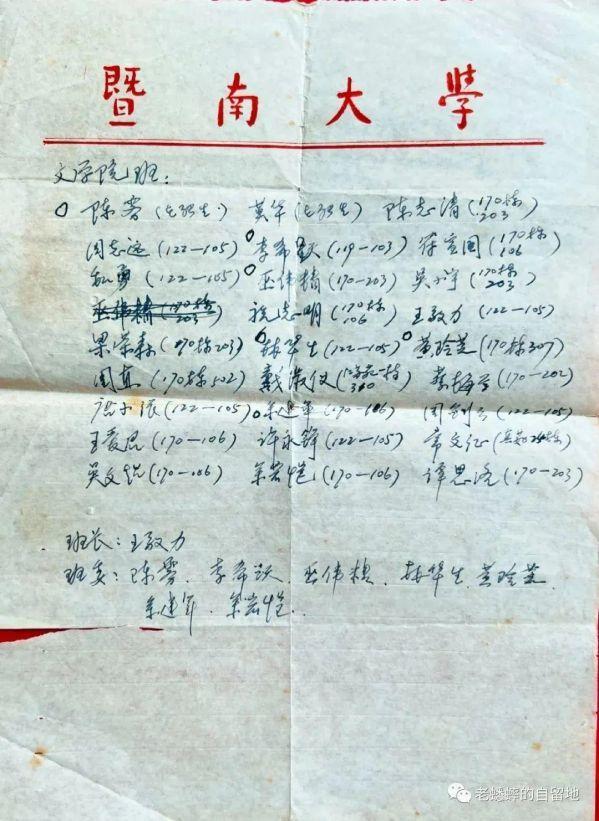 暨南大學
文学院班：
陈雪(走班生) 黄华(走班生) 陈志清(170栋203)
周志远(122—105) 李希跃(119—103) (170栋106)
勇(122—105) 巫伟穗(170—203) 吴小(170栋203)
巫伟穗(170栋203) 祝志明(170栋106) 王致力(122—105)
梁荣森(170栋203) 华生(122—105) 黄玲芝(170栋307)
周真(170栋502) 戴淑仪(340) 梅(170—202)
小浪(122—105) 朱建军(170—106) 周(122—105)
王爱民(170—106) 许永锋(122—105) 常文征
吴文(170—106) 岩恺(170—106) 谭思海(170—203)
班长：王致力
班委：陈雪、李希跃、巫伟穗、华生、黄玲芝、
朱建军、岩恺.
老蟋蟀的自留地